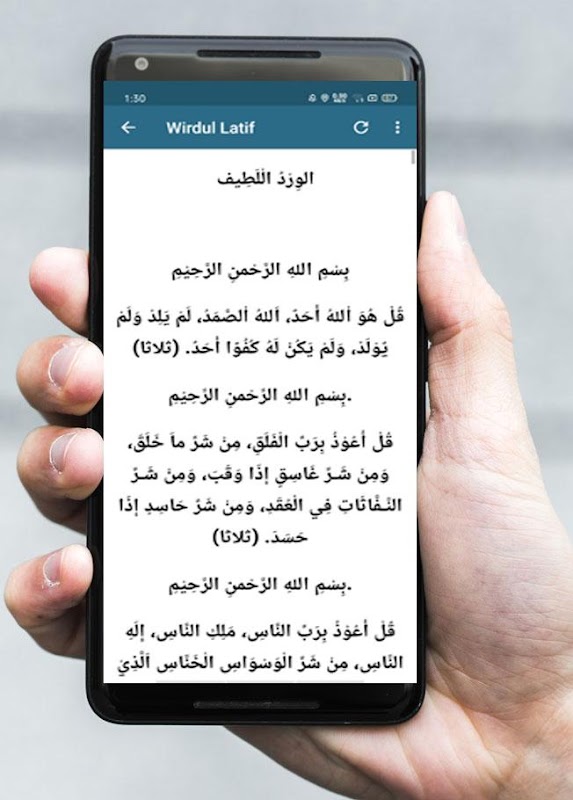 1:30
Wirdul Latif
الوِرْدُ الْلَطِيف
بِسْمِ اللهِ الرَّحْمنِ الرَّحِيْمِ
قُلْ هُوَ اَللهُ أَحَدٌ، اَللهُ اَلصَّمَدُ، لَمْ يَلِدْ وَلَمْ
يُوْلَدْ، وَلَمْ يَكُنْ لَهُ كُفُوًا أَحَدٌ. (ثلاثا)
بِسْمِ اللهِ الرَّحْمنِ الرَّحِيْمِ.
قُلْ أَعُوْذُ بِرَبِّ الْفَلَقِ، مِنْ شَرِّ ماَ خَلَقَ،
وَمِنْ شَرِّ غَاسِقٍ إِذَا وَقَبَ، وَمِنْ شَرِّ
النَّفَّاثَاتِ فِي الْعُقَدِ، وَمِنْ شَرِّ حَاسِدٍ إِذَا
حَسَدَ. (ثلاثا)
بِسْمِ اللهِ الرَّحْمنِ الرَّحِيْمِ.
قُلْ أَعُوْذُ بِرَبِّ النَّاسِ، مَلِكِ النَّاسِ، إِلَهِ
النَّاسِ، مِنْ شَرِّ الْوَسْوَاسِ الْخَنَّاسِ اَلَّذِيْ